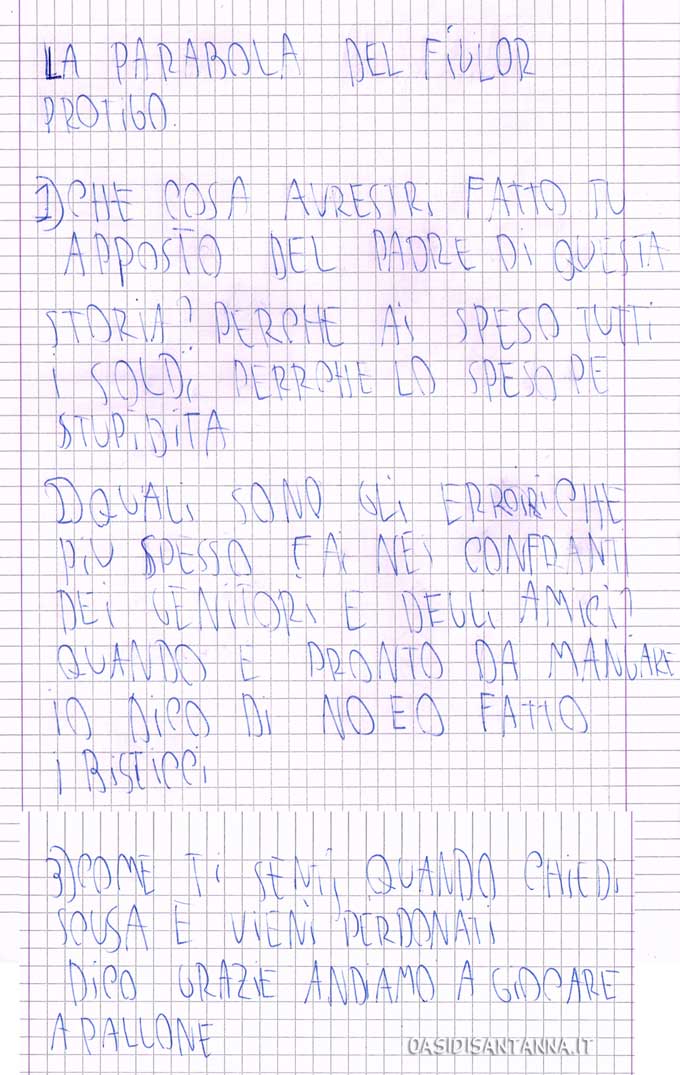 LA PARABOLA DEL FIULOR
PROTIGO.
1) CHE COSA AVRESTRI FATTO TU
APPOSTO DEL PADRE DI QUESTA
STORIA? PERCHE AI SPESO TUTTI
I SOLDI PERRCHE LO SPESO PE
STUPIDITA
2) QUALI SONO GLI ERRORI CHE
PIU SPESSO FAI NEI CONFRANTI
DEI GENITORI E DEGLI AMICI?
QUANDO E PRONTO DA MANGARE
IO DICO DI NO E O FATTO
I BISTICCI
3) COME TI SENTI, QUANDO CHIEDI
SCUSA E VIENI PERDONATI
DICO GRAZIE ANDIAMO A GIOCARE
A PALLONE
OASIDISANTANNA.IT